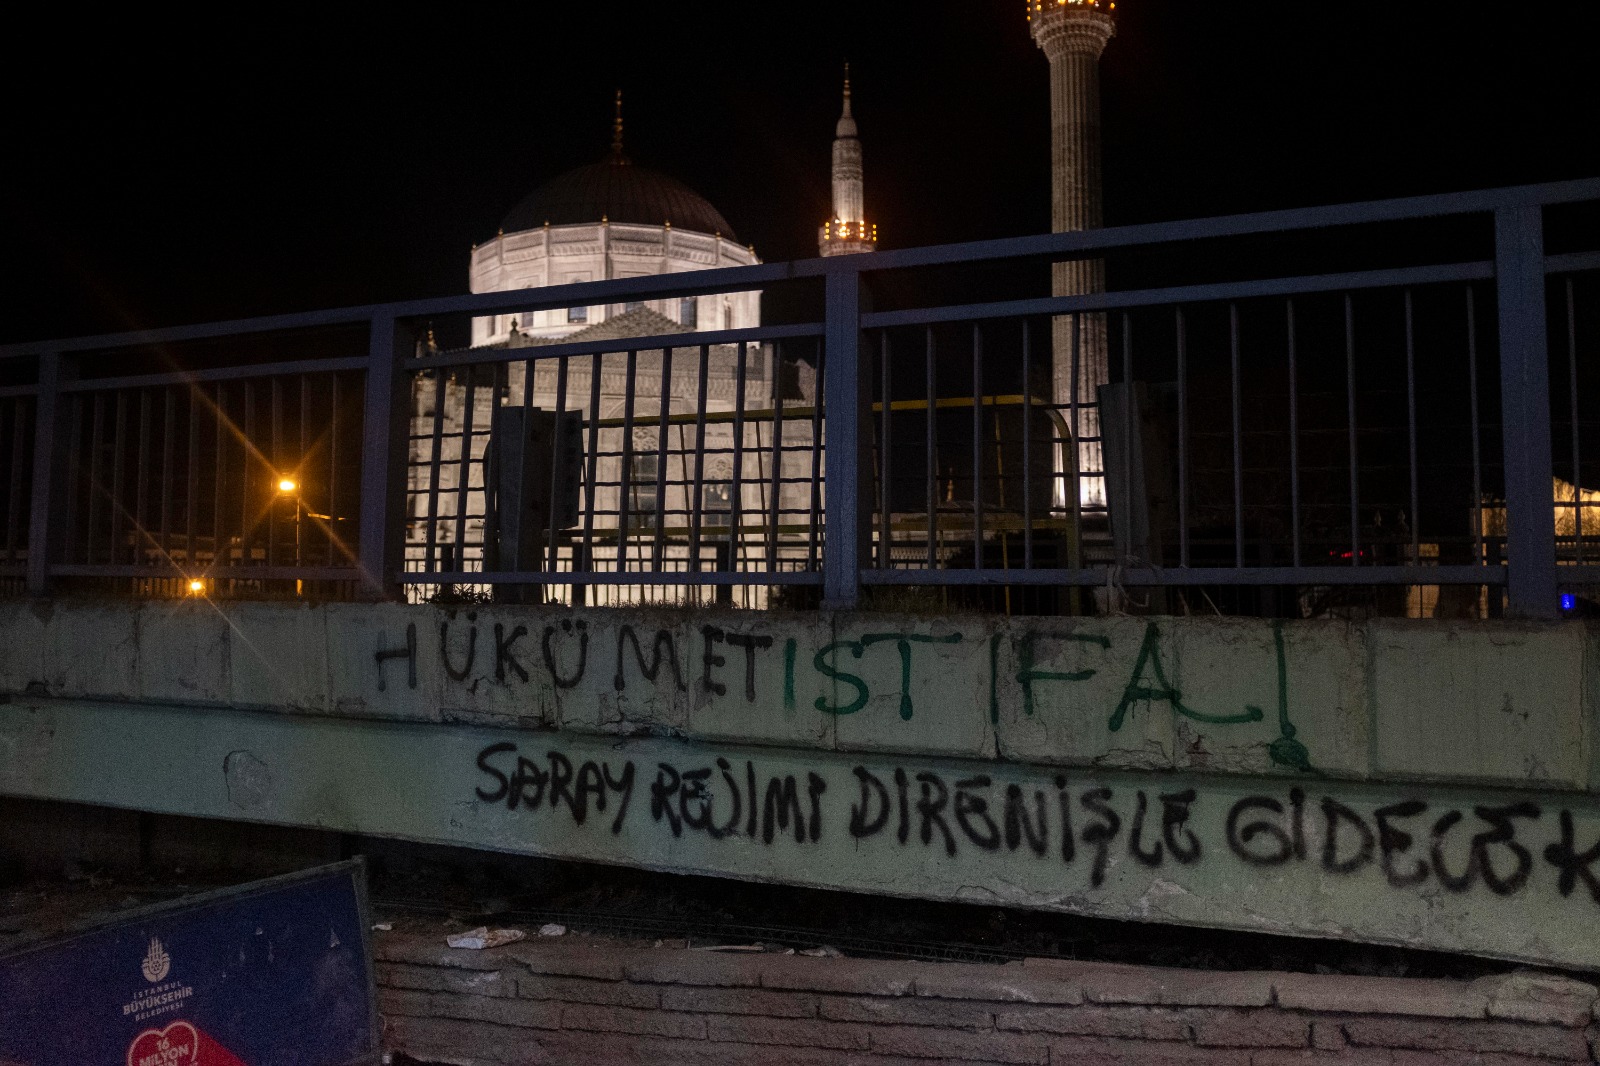 HÜKÜMET ISTIFA!
SARAY REJİMİ DİRENİŞLE GİDECEK
İSTANBUL
BÜYÜKŞEHİR
BELEDİYESİ
16
MİLYON